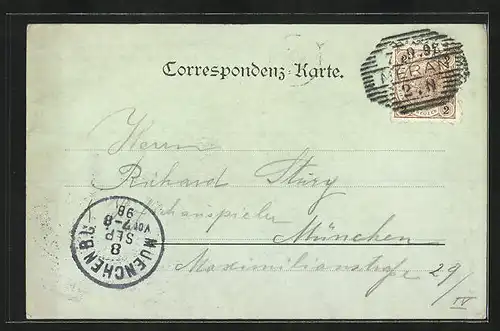 Correspondenz-Karte.
7.9.98
MERAN
2.N
2
Herrn
Richard Stury
Schauspieler
München
Maximilianstraße 29/IV
MUENCHEN B.C.
8
SEP
VOR 7-8
98